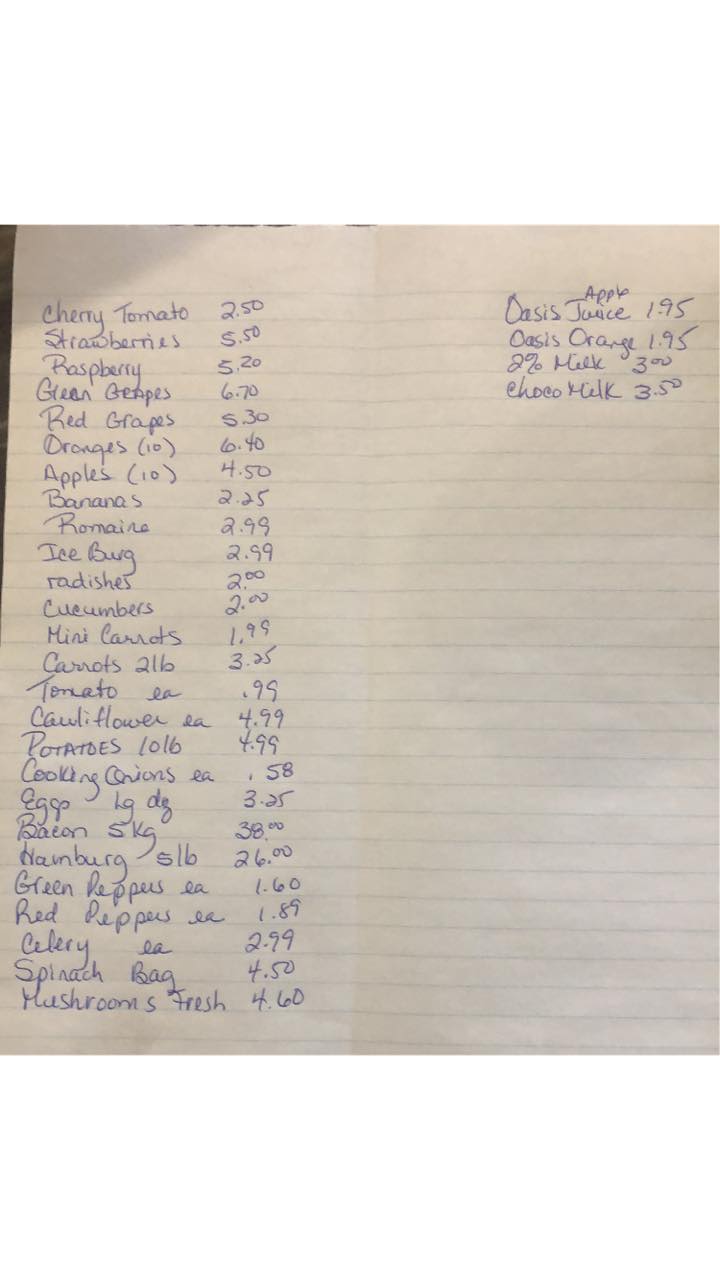 Cherry Tomato 2.50
Strawberries 5.50
Raspberry 5.20
Green Grapes 6.70
Red Grapes 5.30
Oranges (10) 6.40
Apples (10) 4.50
Bananas 2.25
Romaine 2.99
Ice Burg 2.99
radishes 2.00
Cucumbers 2.00
Mini Carrots 1.99
Carrots 2lb 3.25
Tomato ea .99
Cauliflower ea 4.99
POTATOES 10lb 4.99
Cooking Onions ea .58
Eggs Lg dz 3.25
Bacon 5 Kg 38.00
Hamburg 5lb 26.00
Green Peppers ea 1.60
Red Peppers ea 1.89
Celery ea 2.99
Spinach Bag 4.50
Mushrooms Fresh 4.60
Apple
Oasis Juice 1.95
Oasis Orange 1.95
2% Milk 3.00
Choco Milk 3.50